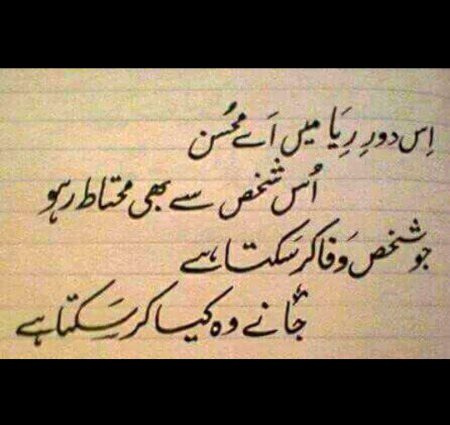 اِس دورِ رِیَا میں اَے محسُن
اُس شخص سے بھی محتاط رہو
جو شخص وَفا کر سَکتا ہے
جَانے وہ کیا کر سَکتا ہے